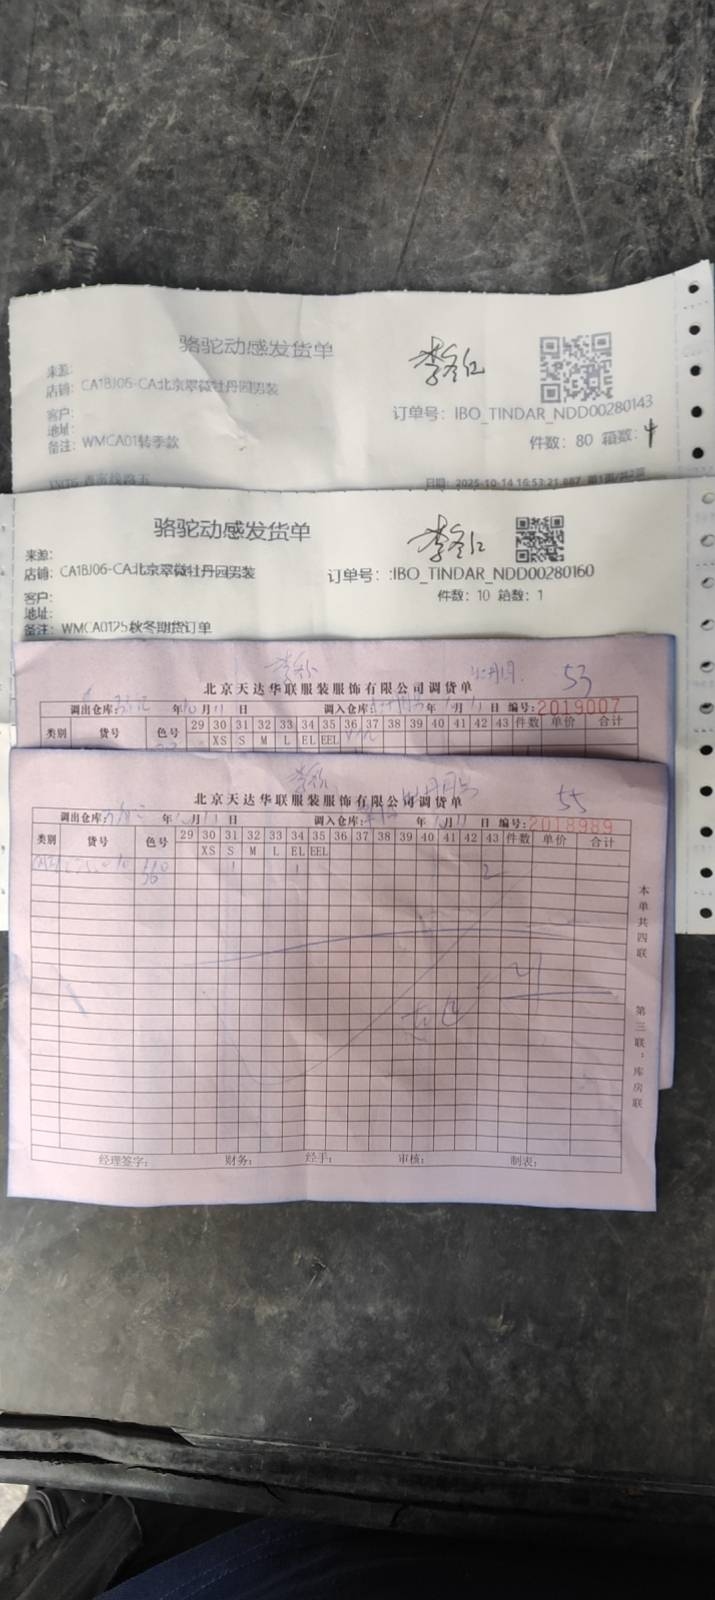 骆驼动感发货单
李冬红
来源:
店铺: CA1BJ06-CA北京翠微牡丹园男装
客户:
订单号: IBO_TINDAR_NDD00280143
地址:
备注: WMCA01转季款
件数: 80 箱数: 4
日期: 2025-10-14 16:53:21
骆驼动感发货单
李冬红
来源:
店铺: CA1BJ06-CA北京翠微牡丹园男装
订单号: :IBO_TINDAR_NDD00280160
客户:
件数: 10 箱数: 1
地址:
备注: WMCA0125秋冬期货订单
53
北京天达华联服装服饰有限公司调货单
调出仓库: 年10月11日 调入仓库: 月11日 编号: 2019007
类别 货号 色号 29 30 31 32 33 34 35 36 37 38 39 40 41 42 43 件数 单价 合计
XS S M L EL EEL
55
北京天达华联服装服饰有限公司调货单
调出仓库: 年 月11日 调入仓库: 年 月11日 编号: 2018989
类别 货号 色号 29 30 31 32 33 34 35 36 37 38 39 40 41 42 43 件数 单价 合计
XS S M L EL EEL
1 1 2
21
本单共四联
第三联:库房联
经理签字: 财务: 经手: 审核: 制表: